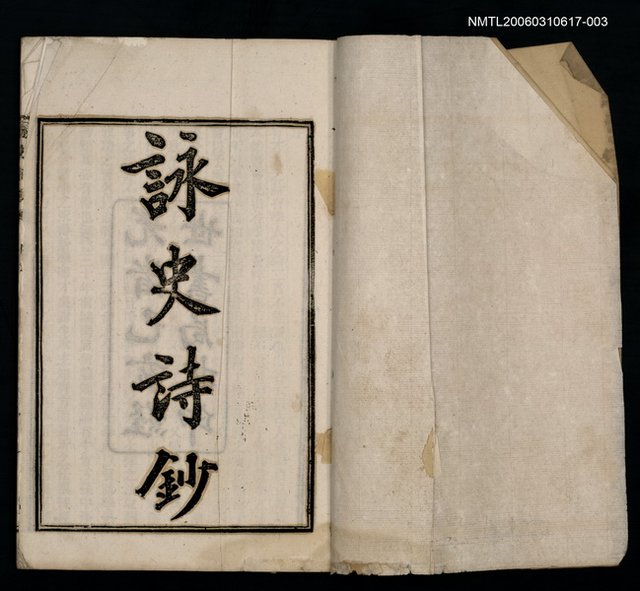 NMTL20060310617-003
詠史詩鈔